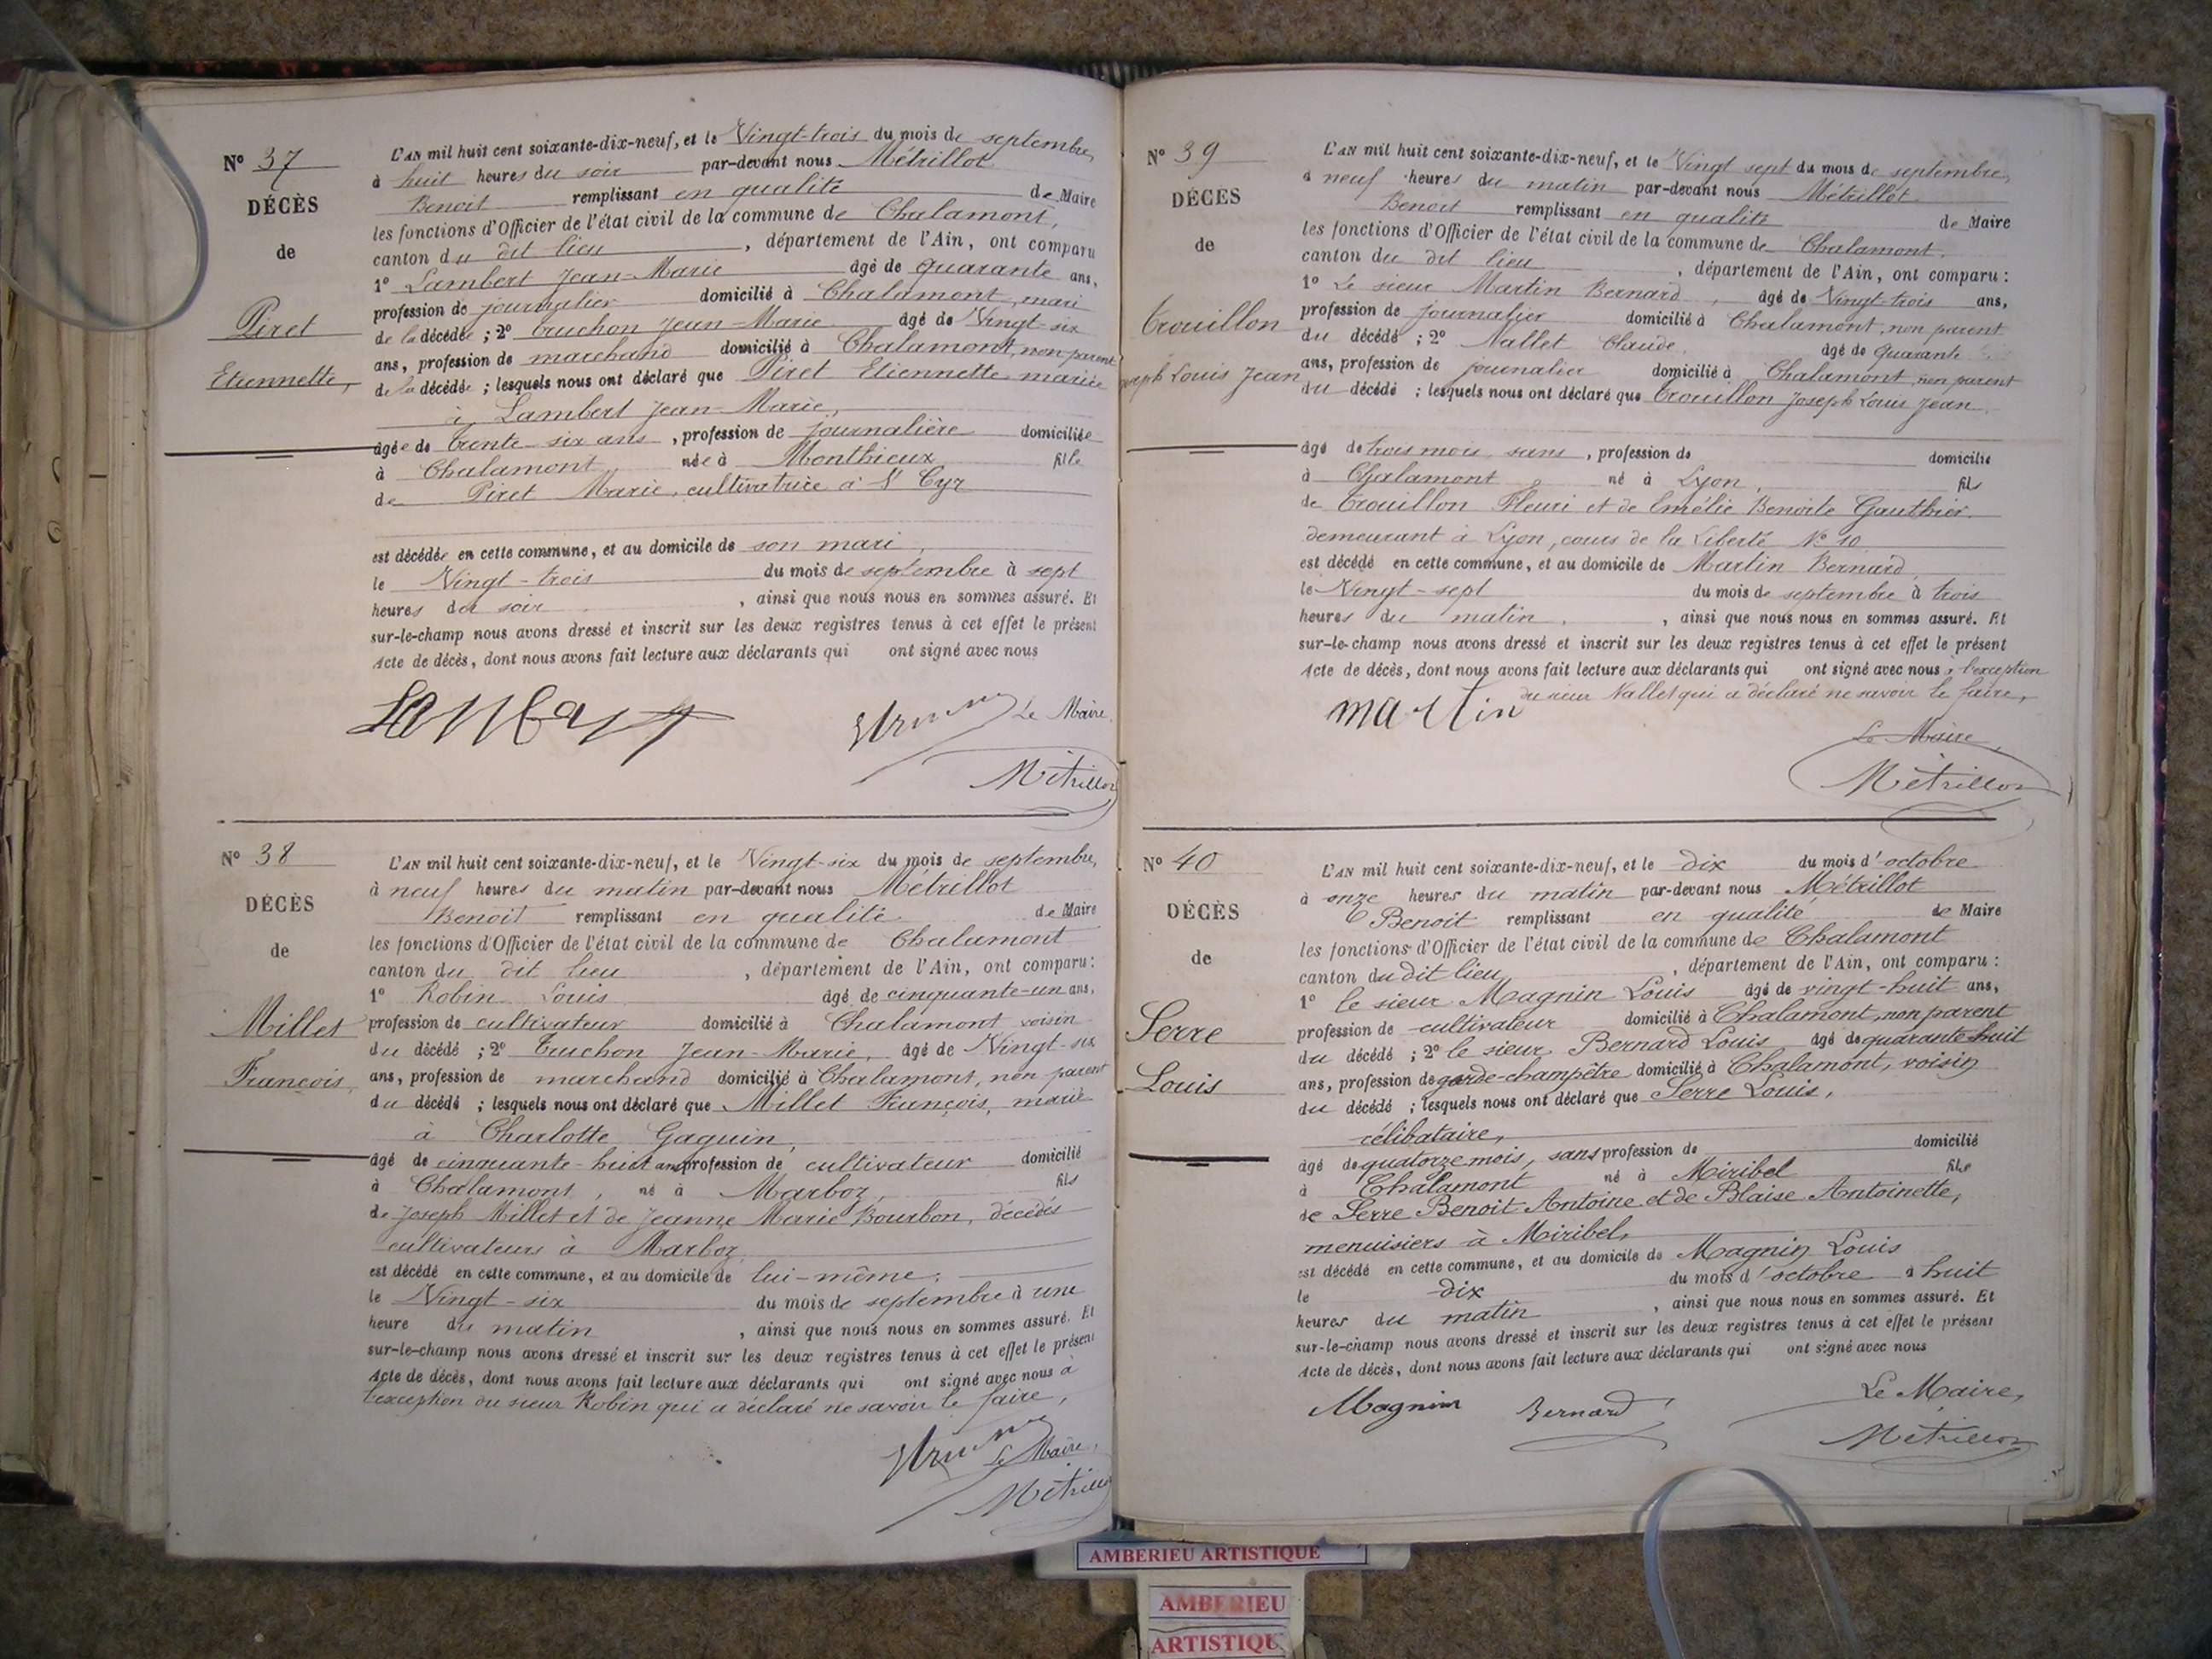 N° 37
DÉCÈS
de
Piret
Etiennette,
L'AN mil huit cent soixante-dix-neuf, et le Vingt-trois du mois de septembre,
à huit heures du soir par-devant nous Métrillot
Benoit remplissant en qualité de Maire
les fonctions d'Officier de l'état civil de la commune de Chalamont,
canton du dit lieu, département de l'Ain, ont comparu
1° Lambert Jean-Marie âgé de quarante ans,
profession de journalier domicilié à Chalamont, mari
de la décédée ; 2° Truchon Jean-Marie âgé de Vingt-six
ans, profession de marchand domicilié à Chalamont, non parent
de la décédée ; lesquels nous ont déclaré que Piret Etiennette mariée
à Lambert Jean-Marie,
âgée de trente-six ans, profession de journalière domiciliée
à Chalamont née à Monthieux fille
de Piret Marie, cultivatrice à St Cyr
est décédée en cette commune, et au domicile de son mari,
le Vingt-trois du mois de septembre à sept
heures du soir, ainsi que nous nous en sommes assuré. Et
sur-le-champ nous avons dressé et inscrit sur les deux registres tenus à cet effet le présent
Acte de décès, dont nous avons fait lecture aux déclarants qui ont signé avec nous
Le Maire,
Métrillot
N° 38
DÉCÈS
de
Millet
François,
L'AN mil huit cent soixante-dix-neuf, et le Vingt-six du mois de septembre,
à neuf heures du matin par-devant nous Métrillot
Benoit remplissant en qualité de Maire
les fonctions d'Officier de l'état civil de la commune de Chalamont
canton du dit lieu, département de l'Ain, ont comparu :
1° Robin Louis âgé de cinquante-un ans,
profession de cultivateur domicilié à Chalamont voisin
du décédé ; 2° Truchon Jean-Marie, âgé de Vingt-six
ans, profession de marchand domicilié à Chalamont, non parent
du décédé ; lesquels nous ont déclaré que Millet François, marié
à Charlotte Gaguin,
âgé de cinquante-huit ans profession de cultivateur domicilié
à Chalamont, né à Marboz, fils
de Joseph Millet et de Jeanne Marie Bourbon, décédés
cultivateurs à Marboz
est décédé en cette commune, et au domicile de lui-même,
le Vingt-six du mois de septembre à une
heure du matin, ainsi que nous nous en sommes assuré. Et
sur-le-champ nous avons dressé et inscrit sur les deux registres tenus à cet effet le présent
Acte de décès, dont nous avons fait lecture aux déclarants qui ont signé avec nous à
l'exception du sieur Robin qui a déclaré ne savoir le faire,
Le Maire,
Métrillot
N° 39
DÉCÈS
de
Trouillon
Joseph Louis Jean
L'AN mil huit cent soixante-dix-neuf, et le Vingt sept du mois de septembre,
à neuf heures du matin par-devant nous Métrillot
Benoit remplissant en qualité de Maire
les fonctions d'Officier de l'état civil de la commune de Chalamont.
canton du dit lieu, département de l'Ain, ont comparu :
1° Le sieur Martin Bernard, âgé de Vingt-trois ans,
profession de journalier domicilié à Chalamont, non parent
du décédé ; 2° Nallet Claude, âgé de quarante
ans, profession de journalier domicilié à Chalamont, non parent
du décédé ; lesquels nous ont déclaré que Trouillon Joseph Louis Jean,
âgé de trois mois, sans, profession de domicilié
à Chalamont né à Lyon, fils
de Trouillon Fleuri et de Emélie Benoite Gauthier
demeurant à Lyon, cours de la Liberté N° 10
est décédé en cette commune, et au domicile de Martin Bernard,
le Vingt-sept du mois de septembre à trois
heures du matin, ainsi que nous nous en sommes assuré. Et
sur-le-champ nous avons dressé et inscrit sur les deux registres tenus à cet effet le présent
Acte de décès, dont nous avons fait lecture aux déclarants qui ont signé avec nous à l'exception
du sieur Nallet qui a déclaré ne savoir le faire,
martin
Le Maire,
Métrillot
N° 40
DÉCÈS
de
Serre
Louis
L'AN mil huit cent soixante-dix-neuf, et le dix du mois d'octobre
à onze heures du matin par-devant nous Métrillot
Benoit remplissant en qualité de Maire
les fonctions d'Officier de l'état civil de la commune de Chalamont
canton du dit lieu, département de l'Ain, ont comparu :
1° le sieur Magnin Louis âgé de vingt-huit ans,
profession de cultivateur domicilié à Chalamont, non parent
du décédé ; 2° le sieur Bernard Louis âgé de quarante-huit
ans, profession de garde-champêtre domicilié à Chalamont, voisin
du décédé ; lesquels nous ont déclaré que Serre Louis,
célibataire,
âgé de quatorze mois, sans profession de domicilié
à Chalamont né à Miribel fils
de Serre Benoit Antoine et de Blaise Antoinette,
menuisiers à Miribel,
est décédé en cette commune, et au domicile de Magnin Louis
le dix du mois d'octobre à huit
heures du matin, ainsi que nous nous en sommes assuré. Et
sur-le-champ nous avons dressé et inscrit sur les deux registres tenus à cet effet le présent
Acte de décès, dont nous avons fait lecture aux déclarants qui ont signé avec nous
Le Maire,
Magnin Bernard Métrillot
AMBERIEU ARTISTIQUE
AMBERIEU
ARTISTIQU